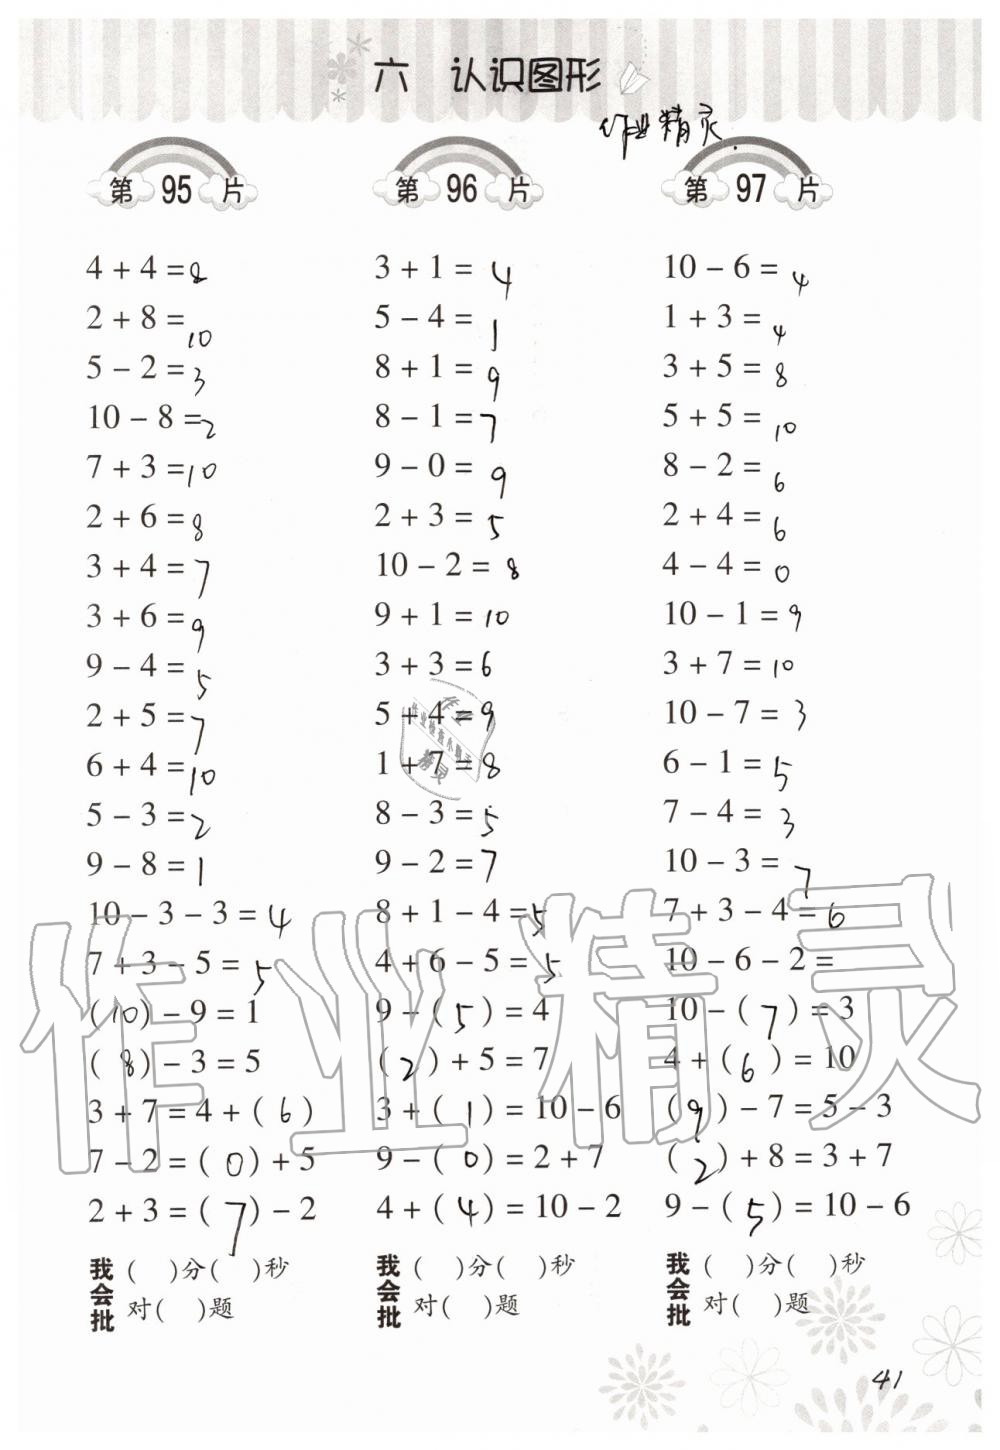 六 认识图形
作业精灵
第 95 片
4 + 4 = 8
2 + 8 = 10
5 - 2 = 3
10 - 8 = 2
7 + 3 = 10
2 + 6 = 8
3 + 4 = 7
3 + 6 = 9
9 - 4 = 5
2 + 5 = 7
6 + 4 = 10
5 - 3 = 2
9 - 8 = 1
10 - 3 - 3 = 4
7 + 3 - 5 = 5
(10) - 9 = 1
(8) - 3 = 5
3 + 7 = 4 + (6)
7 - 2 = (0) + 5
2 + 3 = (7) - 2
我会批
( )分( )秒
对( )题
第 96 片
3 + 1 = 4
5 - 4 = 1
8 + 1 = 9
8 - 1 = 7
9 - 0 = 9
2 + 3 = 5
10 - 2 = 8
9 + 1 = 10
3 + 3 = 6
5 + 4 = 9
1 + 7 = 8
8 - 3 = 5
9 - 2 = 7
8 + 1 - 4 = 5
4 + 6 - 5 = 5
9 - (5) = 4
(2) + 5 = 7
3 + (1) = 10 - 6
9 - (0) = 2 + 7
4 + (4) = 10 - 2
我会批
( )分( )秒
对( )题
第 97 片
10 - 6 = 4
1 + 3 = 4
3 + 5 = 8
5 + 5 = 10
8 - 2 = 6
2 + 4 = 6
4 - 4 = 0
10 - 1 = 9
3 + 7 = 10
10 - 7 = 3
6 - 1 = 5
7 - 4 = 3
10 - 3 = 7
7 + 3 - 4 = 6
10 - 6 - 2 =
10 - (7) = 3
4 + (6) = 10
(9) - 7 = 5 - 3
(2) + 8 = 3 + 7
9 - (5) = 10 - 6
我会批
( )分( )秒
对( )题
41
作业精灵